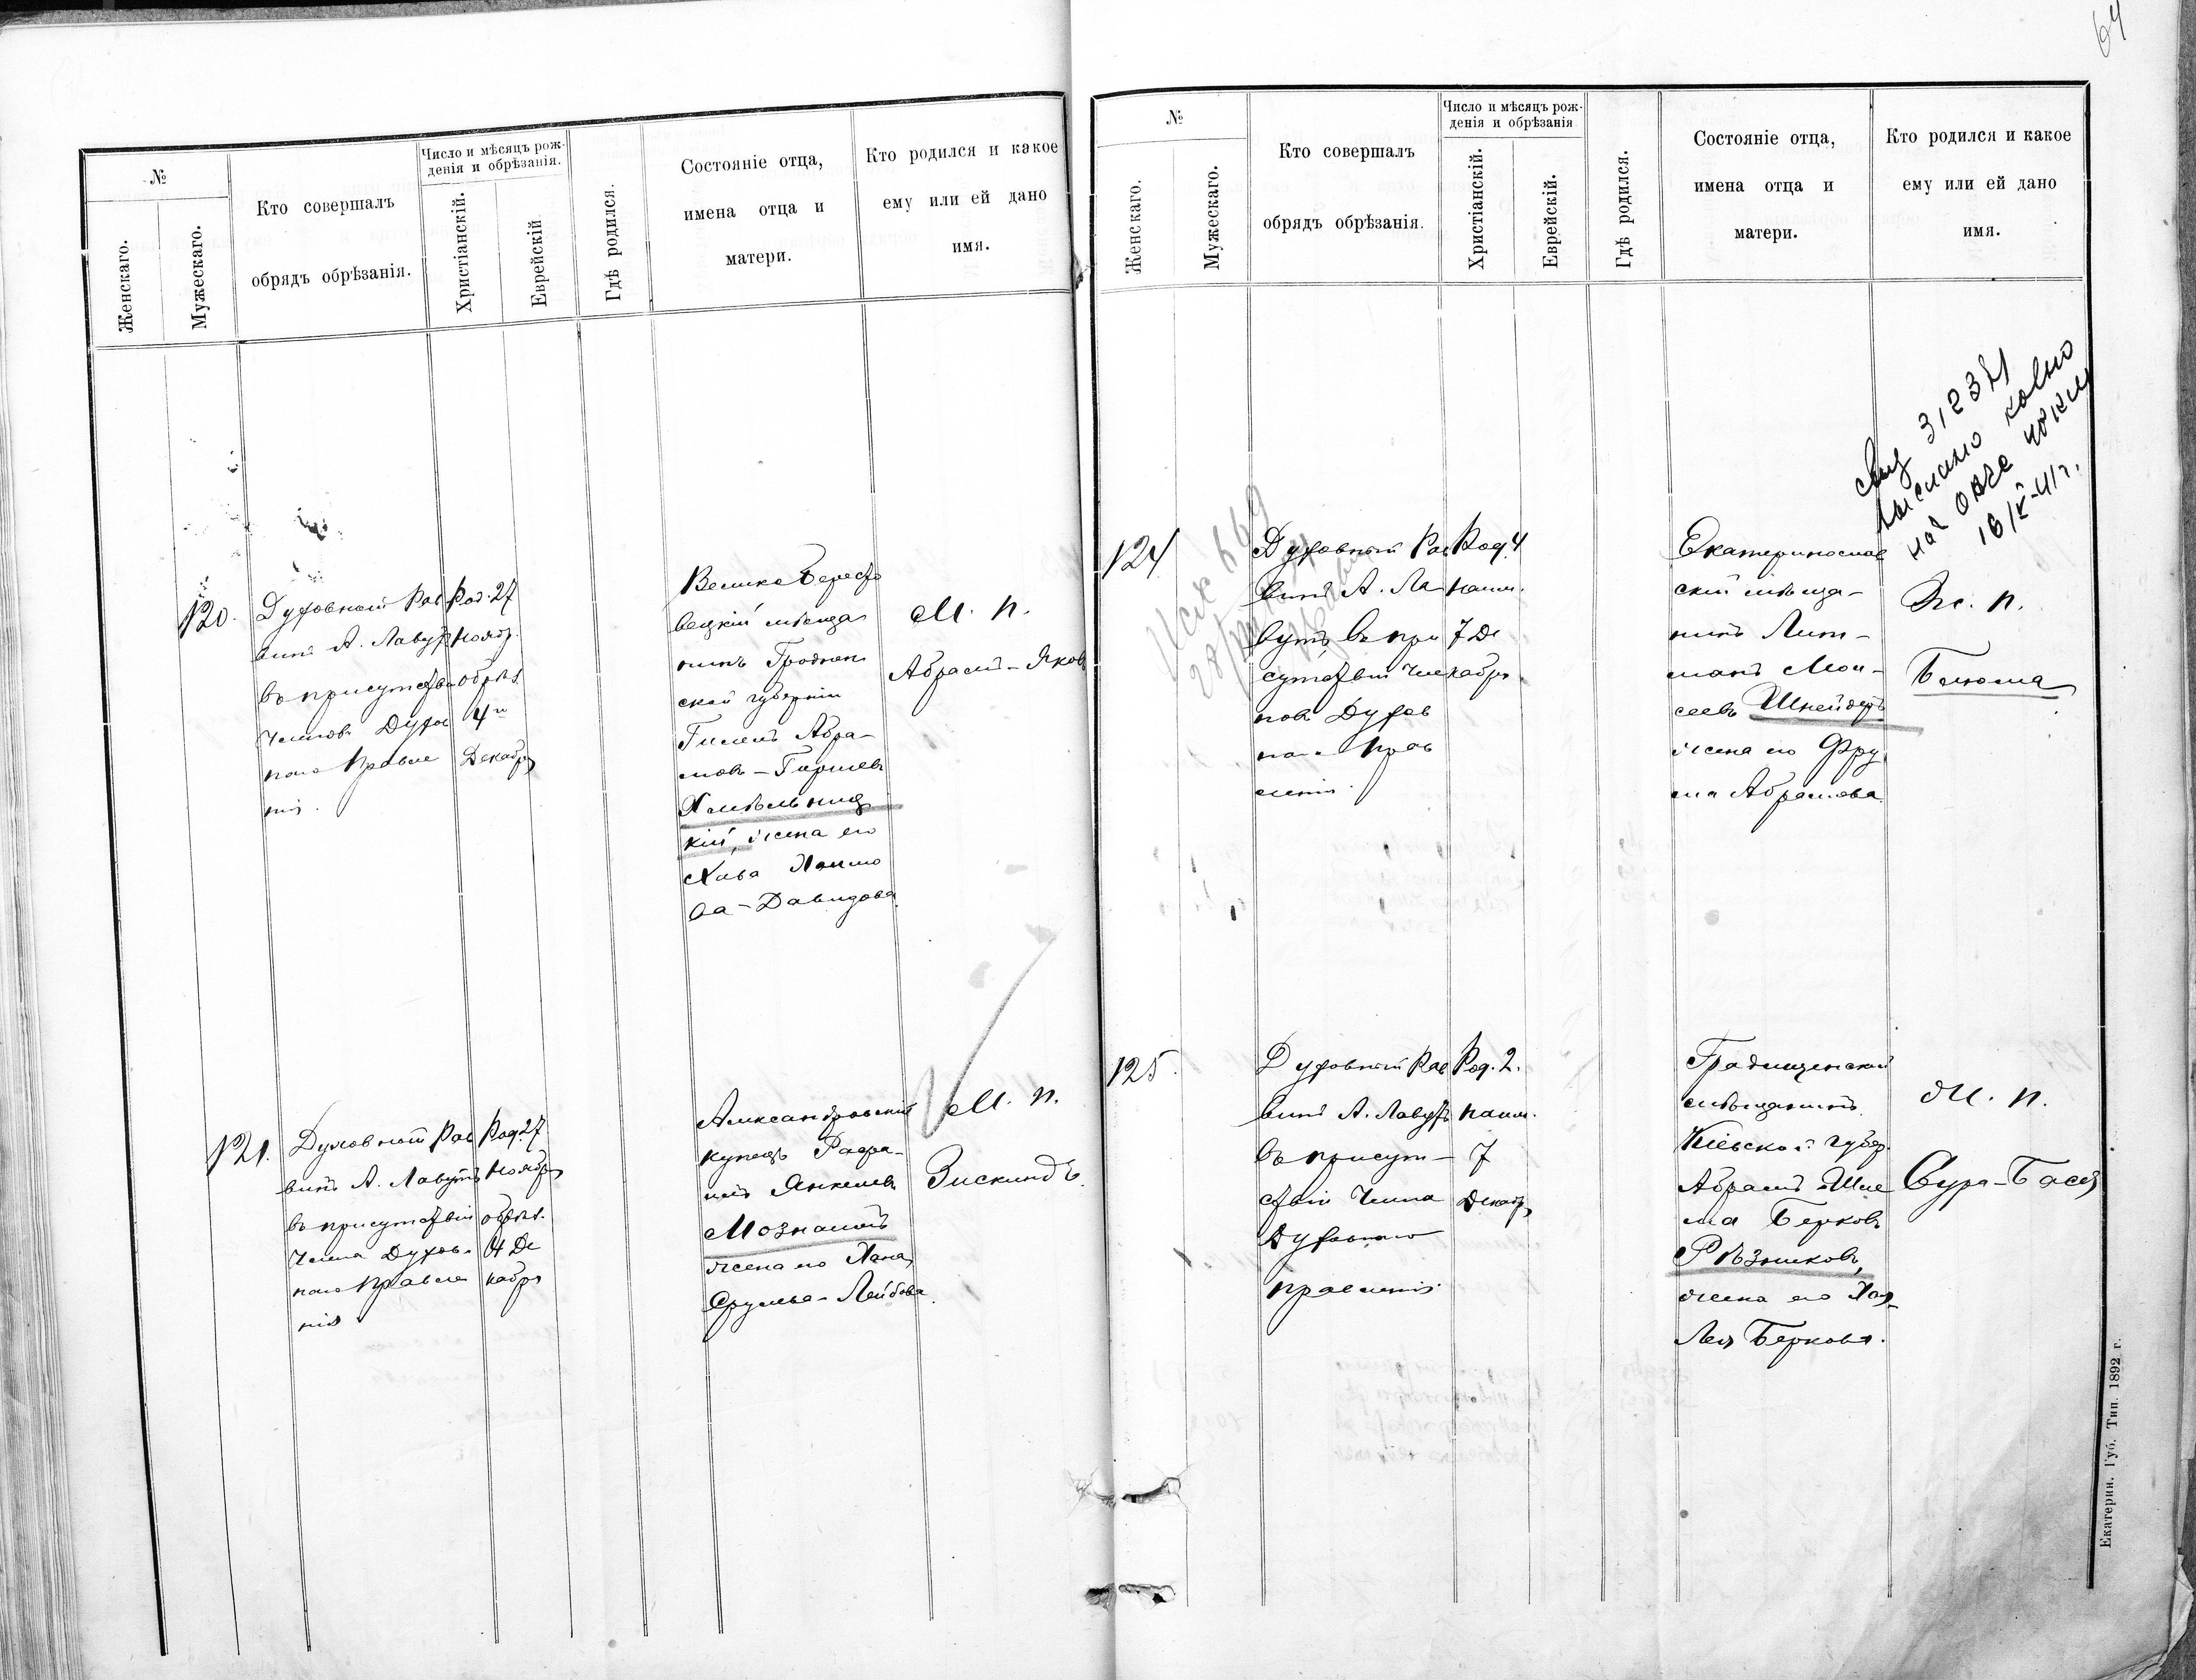 64
№
Женскаго.
Мужескаго.
Кто совершалъ
обрядъ обрѣзанія.
Число и мѣсяцъ рож-
денія и обрѣзанія.
Христіанскій.
Еврейскій
Гдѣ родился.
Состояніе отца,
имена отца и
матери.
Кто родился и какое
ему или ей дано
имя.
120.
Духовный Рав
винъ А. Лавутъ
въ присутствіи
Членовъ Духов
наго Правле
нія.
Род. 27
Ноябр.
обрѣз.
4го
Декабря
Велико Бересто
вецкій мѣща
нинъ Гроднен
ской губерніи
Гилель Абра-
мовъ-Гиршевъ
Хмѣльниц
кій, жена его
Хава Хаимо
ва-Давидова.
М. п.
Абрамъ-Яковъ
121.
Духовный Рав
винъ А. Лавутъ
въ присутствіи
Члена Духов-
наго Правле
нія
Род. 27
Ноября
обрѣз.
4 Де
кабря
Александровскій
купецъ Рафа-
илъ Янкелевъ
Мознаимъ
жена его Хана
Срулева-Лейбова.
М. п.
Зискиндъ.
№
Женскаго.
Мужескаго.
Кто совершалъ
обрядъ обрѣзанія.
Число и мѣсяцъ рож-
денія и обрѣзанія
Христіанскій.
Еврейскій.
Гдѣ родился.
Состояніе отца,
имена отца и
матери.
Кто родился и какое
ему или ей дано
имя.
312371
на
16/V-41 г.
Исх 669
124
Духовный Рав
винъ А. Ла
вутъ въ при
сутствіи Чле
новъ Духов
наго Прав
ленія.
Род. 4
наим.
7 Де
кабря.
Екатеринослав
скій мѣща-
нинъ Лип-
манъ Мои-
сеевъ Шнейдеръ
жена его Фру
ма Абрамова.
Ж. п.
Блюма
125.
Духовный Рав
винъ А. Лавутъ
въ присут-
ствіи Члена
Духовнаго
правленія.
Род. 2.
наим.
7
Декабря
Градищенскій
мѣщанинъ
Кіевской губер.
Абрамъ Шле
ма Берковъ
Рѣзниковъ,
жена его Хая-
Лея Беркова.
М. п.
Сура-Бася
Екатерин. Губ. Тип. 1892 г.